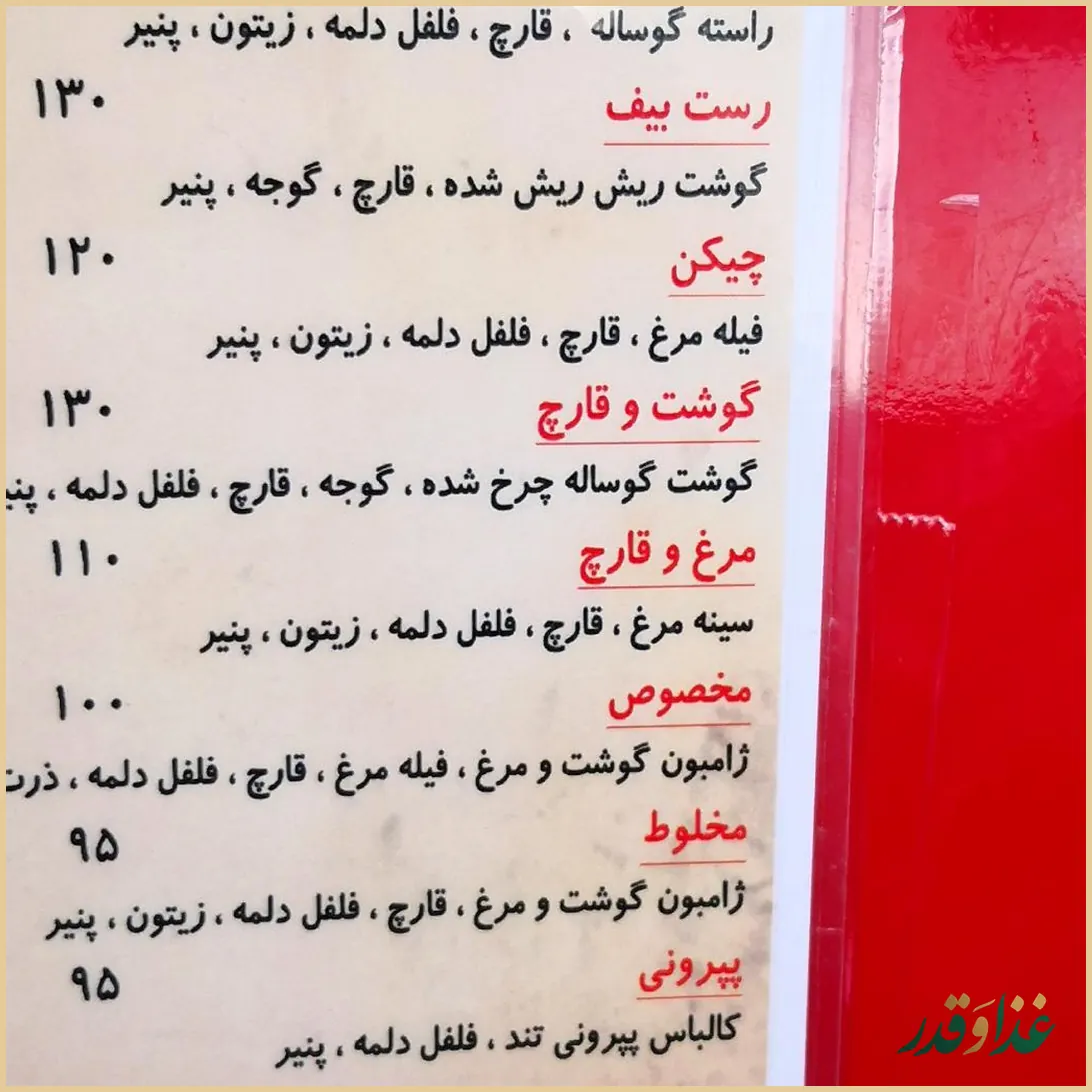 راسته گوساله ، قارچ ، فلفل دلمه ، زیتون ، پنیر
رست بیف ۱۳۰
گوشت ریش ریش شده ، قارچ ، گوجه ، پنیر
چیکن ۱۲۰
فیله مرغ ، قارچ ، فلفل دلمه ، زیتون ، پنیر
گوشت و قارچ ۱۳۰
گوشت گوساله چرخ شده ، گوجه ، قارچ ، فلفل دلمه ،
مرغ و قارچ ۱۱۰
سینه مرغ ، قارچ ، فلفل دلمه ، زیتون ، پنیر
مخصوص ۱۰۰
ژامبون گوشت و مرغ ، فیله مرغ ، قارچ ، فلفل دلمه ، ذرت
مخلوط ۹۵
ژامبون گوشت و مرغ ، قارچ ، فلفل دلمه ، زیتون ، پنیر
پپرونی ۹۵
کالباس پپرونی تند ، فلفل دلمه ، پنیر
غذاوَقدر